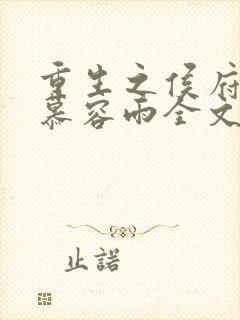 重生之侯府
慕容雨全文
止諾